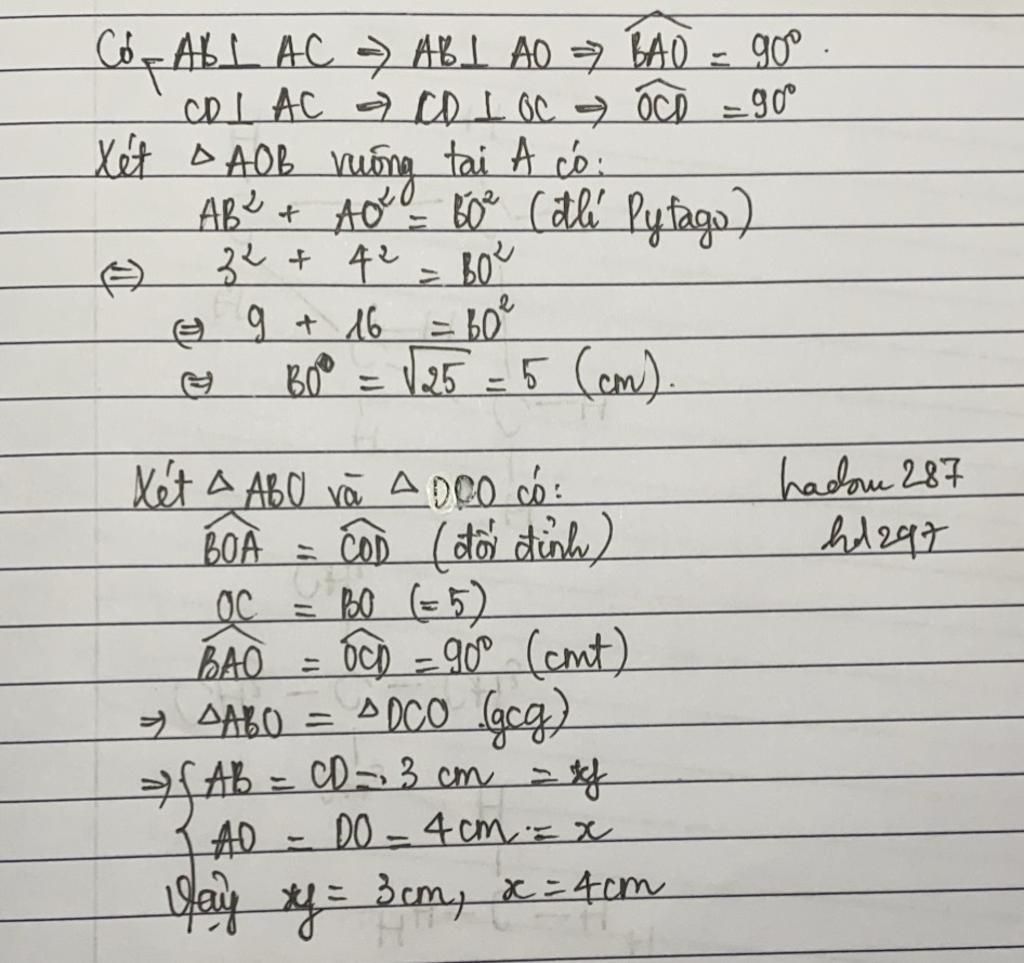 Có AB ⊥ AC ⇒ AB ⊥ AO ⇒ \widehat{BAO} = 90°.
CD ⊥ AC ⇒ CD ⊥ OC ⇒ \widehat{OCD} = 90°
Xét △AOB vuông tại A có:
AB² + AO² = BO² (đlí Pytago)
⇔ 3² + 4² = BO²
⇔ 9 + 16 = BO²
⇔ BO = √25 = 5 (cm).
Xét △ABO và △DCO có:
hadow287
\widehat{BOA} = \widehat{COD} (đối đỉnh)
hd297
OC = BO (=5)
\widehat{BAO} = \widehat{OCD} = 90° (cmt)
⇒ △ABO = △DCO (gcg)
⇒ { AB = CD = 3 cm = y
AO = DO = 4cm = x
Vậy y = 3cm, x = 4cm